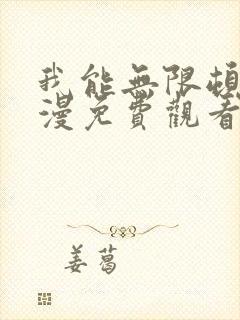 我能無限頓
漫免費觀看
姜葛